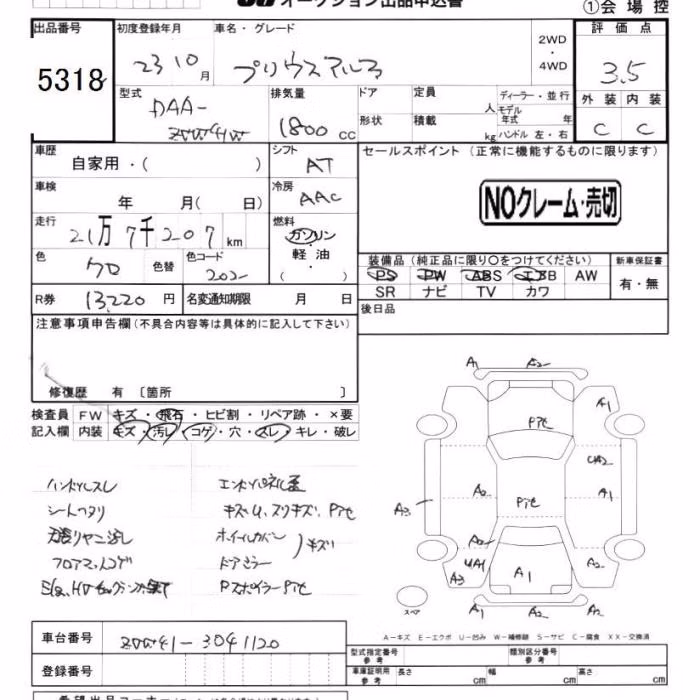 オークション出品申込書
①会場控
出品番号 初度登録年月 車名・グレード 2WD・4WD 評価点
5318 23 10月 プリウスアルファ 3.5
型式 DAA-ZVW41W 排気量 1800 cc
ドア 定員 人 ディーラー・並行
形状 積載 kg モデル年式 年 ハンドル 左・右
外装 内装
C C
車歴 自家用・( ) シフト AT
セールスポイント(正常に機能するものに限ります)
車検 年 月( 日) 冷房 AAC
NOクレーム・売切
走行 21万7千207km 燃料 ガソリン・軽油・( )
色 クロ 色替 色コード 202
装備品(純正品に限り○をつけてください) 新車保証書
PS PW ABS エアB AW 有・無
SR ナビ TV カワ
R券 13,220円 名変通知期限 月 日
後日品
注意事項申告欄(不具合内容等は具体的に記入して下さい)
修復歴 有〔箇所 〕
検査員 FW キズ・飛石・ヒビ割・リペア跡・×要
記入欄 内装 キズ・汚レ・コゲ・穴・スレ・キレ・破レ
ハンドルスレ
シートヘタリ
フロアマットコゲ
キズU、スリキズ、Pアセ
ホイルカバー キズ
ドアミラー
PスポイラーPアセ
A1 A2
A1
Pアセ
UA2
A3 A2 Pアセ A1
A2
UA1 A1 A2
A3
スペア A1 A2 A1
A-キズ E-エクボ U-凹み W-補修跡 S-サビ C-腐食 XX-交換済
車台番号 ZVW41-3041120
型式指定番号 参考 類別区分番号 参考
登録番号
車庫証明用 参考 長さ cm 幅 cm 高さ cm